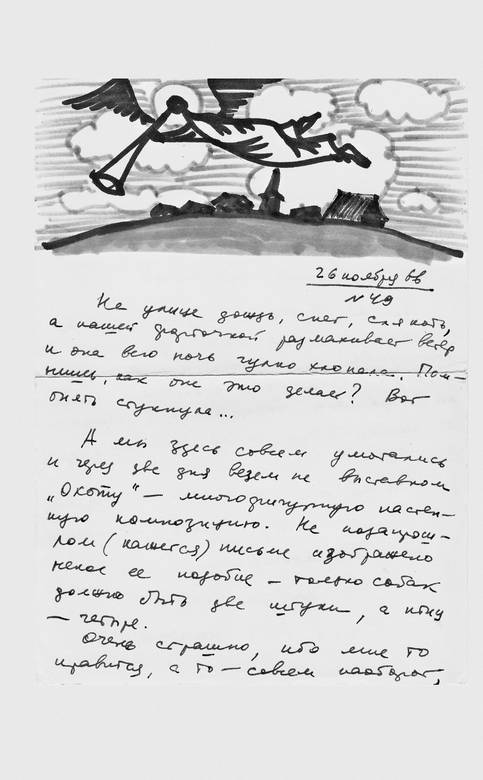 26 ноября 66
№ 49
На улице дождь, снег, слякоть,
а нашей форточкой размахивает ветер
и она всю ночь гулко хлопала. Пом-
нишь, как она это делает? Вот
опять стукнула...
А мы здесь совсем умотались
и через два дня везем на выставком
„Охоту" — многофигурную настен-
ную композицию. На позапрош-
лом (кажется) письме изображено
некое ее подобие — только собак
должно быть две штуки, а птиц
— четыре.
Очень страшно, ибо мне то
нравится, а то — совсем наоборот,